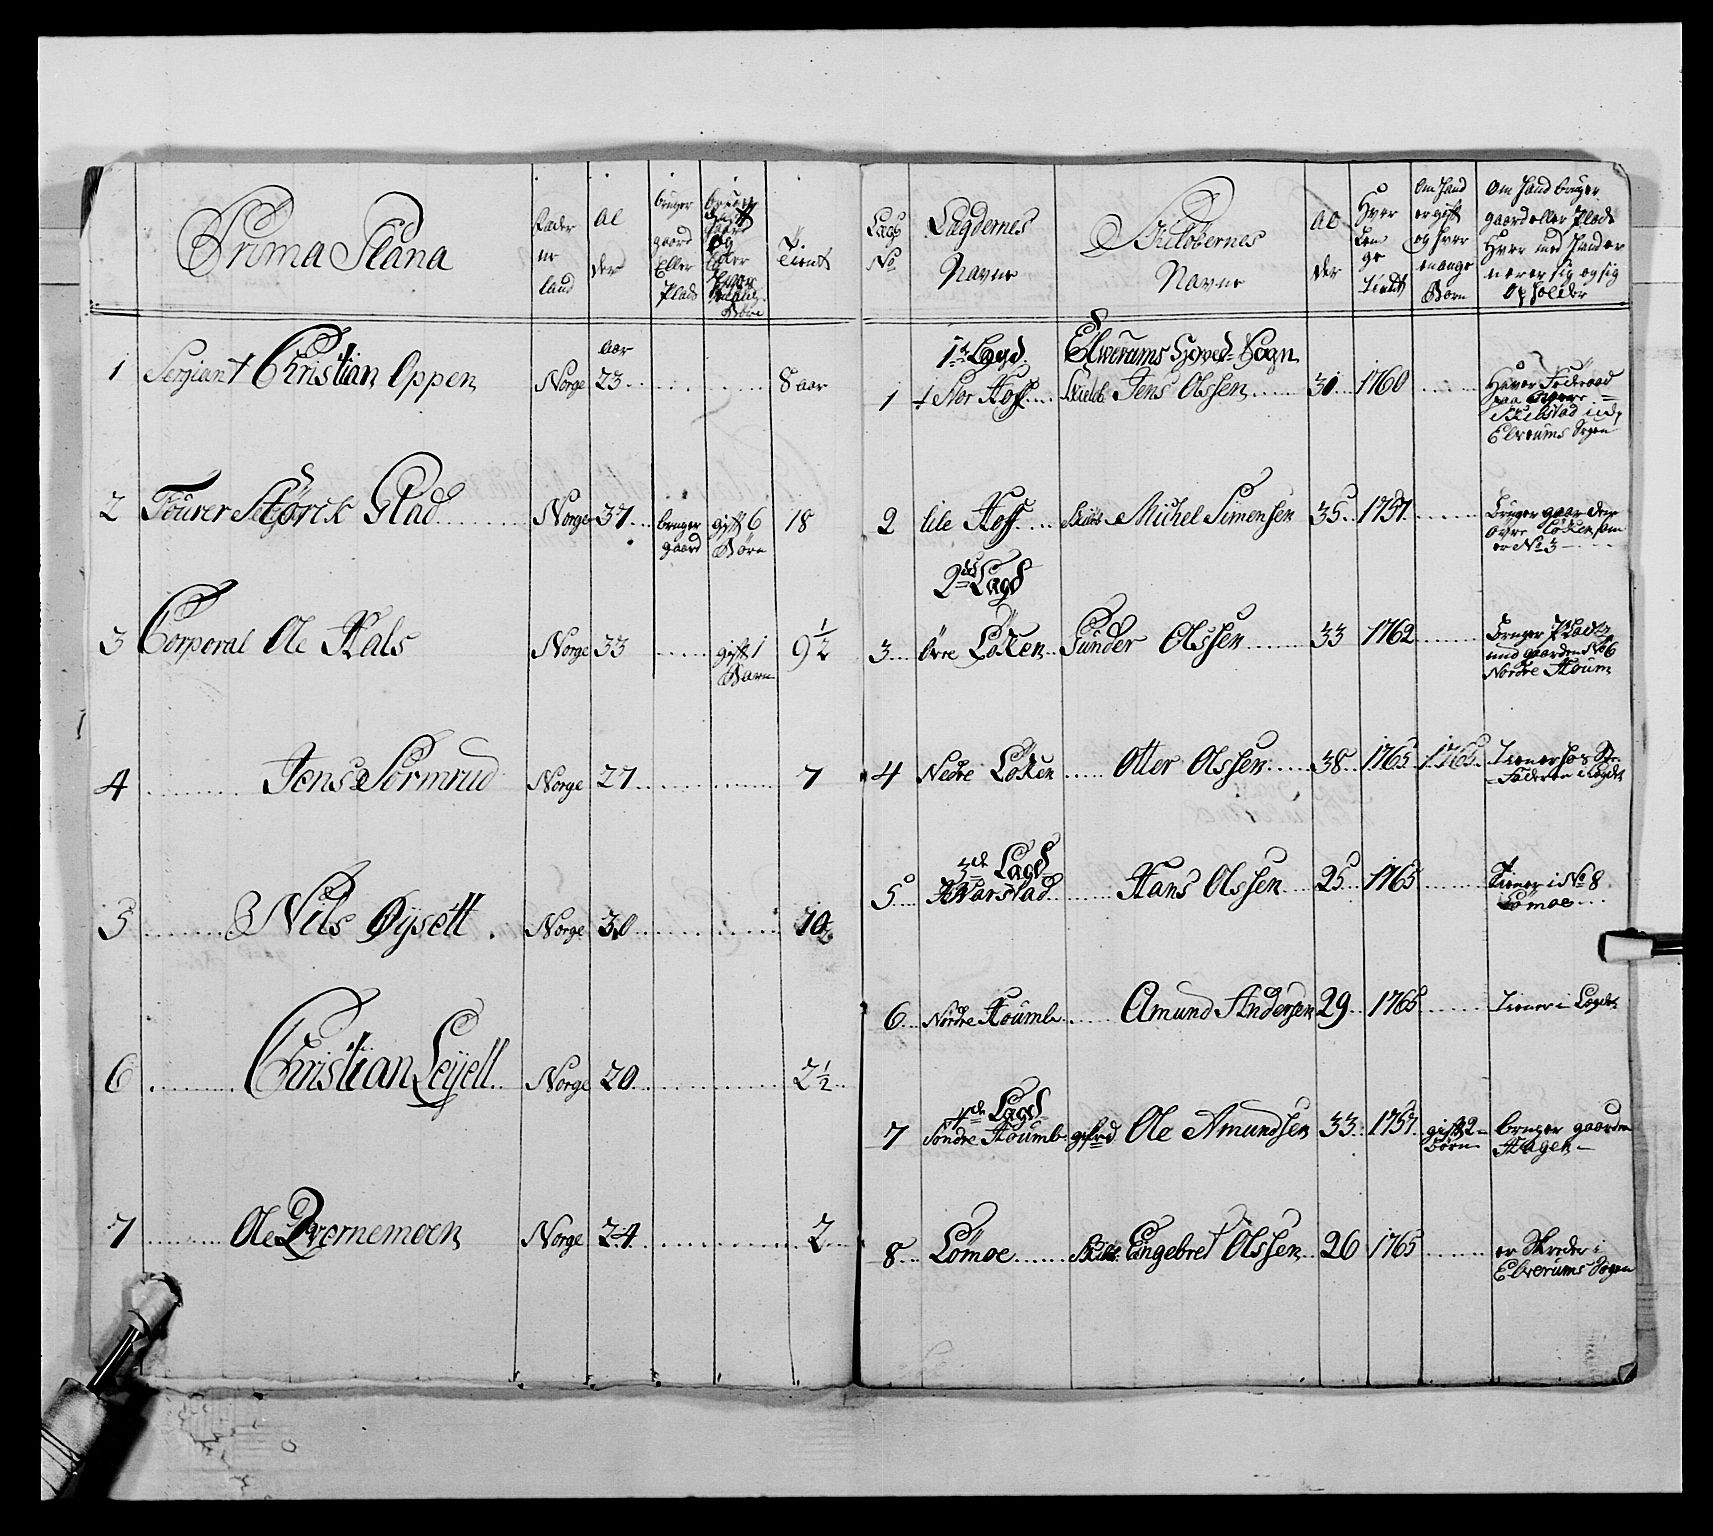 Prima Plana
Fæder
ne
land
Al
der
bruger
gaard
Eller
Plads
Tient
1 Sergiant Christian Oppen Norge 23 aar 8 aar
2 Fourer Størik Glad Norge 37 bruger gaard gift 6 Børn 18
3 Corporal Ole Hals Norge 33 gift 1 Barn 9½
4 Jens Sørmrud Norge 27 7
5 Nils Øysett Norge 30 10
6 Christian Leyell Norge 20 2½
7 Ole Qvernemoen Norge 24 2
Lags No
Lægdernes
Navne
Skiløbernes
Navne
Al
der
Hvor
Len
ge
Tient
Om Hand
er gift
og hvor
mange
Børn
Om Hand bruger
gaard eller Plads
Hvor med Hand er
nerer sig og sig
Opholder
1te Lægd Elwerums Hoved-Sogn
1 Stor Hoff Jens Olssen 31 1760
Skibstad ud
Elverums Sogn
2 lile Hoff Michel Simensen 35 1757 Bruger gaarden
øvre Løken som
er No 3
2det Lægd
3 øvre Løken Gunder Olssen 33 1762 bruger Plads
und gaarden No 6
Nordre Houm
4 Nedre Løken Otter Olssen 38 1765 1765 Tiener hos
Faderen i Legdet
3de Lægd
5 Harstad Hans Olssen 25 1765 Tiener i No 8
Lømoe
6 Nordre Houmb Amund Andersen 29 1765 Tiener i Legdet
4de Lægd
7 Søndre Houmb gefrd Ole Amundsen 33 1757 gift 2 børn bruger gaarden
Hagen
8 Lømoe Engebret Olssen 26 1765 er Skreder i
Elverums Sogn